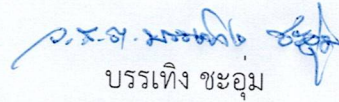 ว.ร.ต. บรรเทิง ชะอุ่ม
บรรเทิง ชะอุ่ม